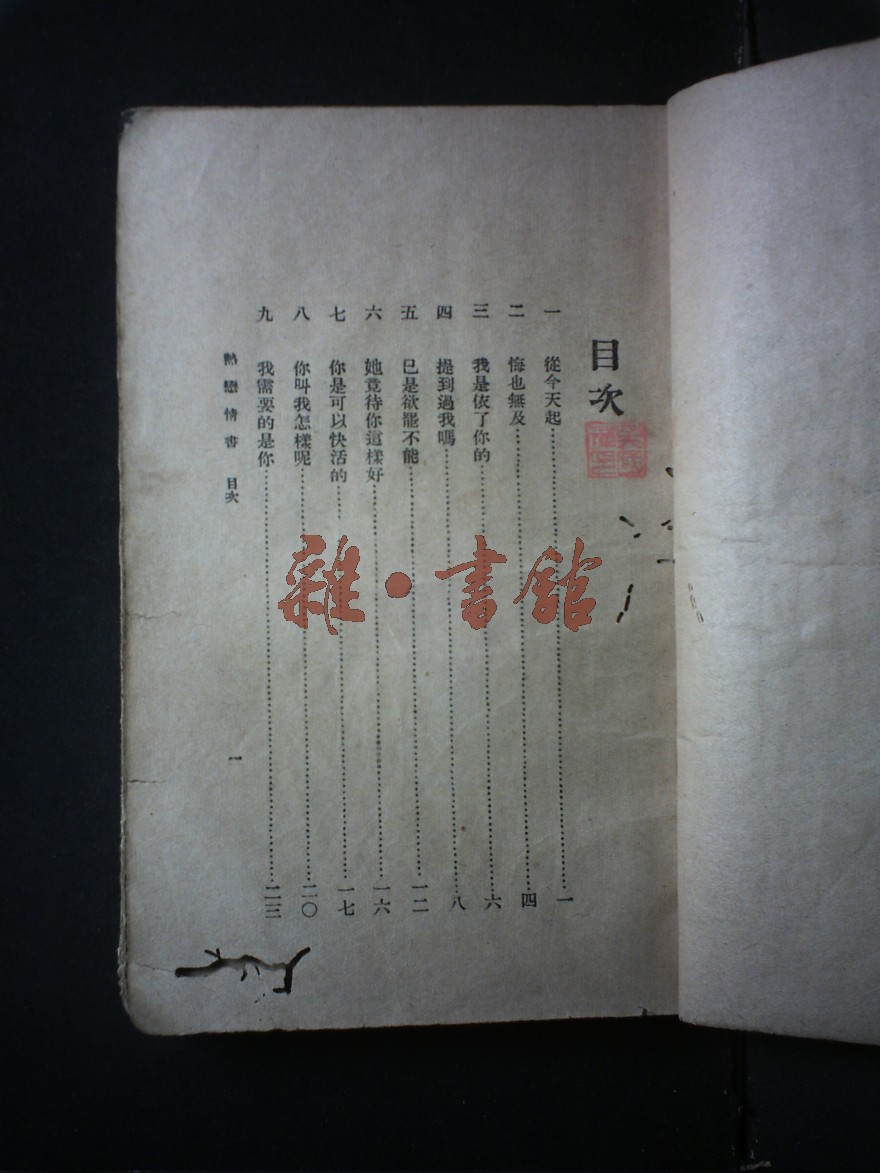 目次
一 從今天起……一
二 悔也無及……四
三 我是依了你的……六
四 提到過我嗎……八
五 已是欲罷不能……一二
六 她竟待你這樣好……一六
七 你是可以快活的……一七
八 你叫我怎樣呢……二〇
九 我需要的是你……二三
熱戀情書 目次 一
雜·書館